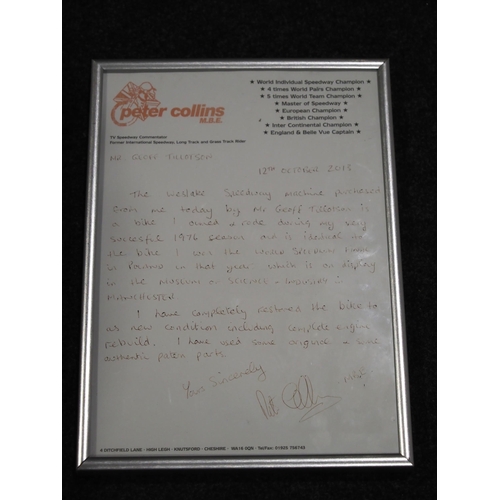 peter collins
M.B.E.
TV Speedway Commentator
Former International Speedway, Long Track and Grass Track Rider
★ World Individual Speedway Champion ★
★ 4 times World Pairs Champion ★
★ 5 times World Team Champion ★
★ Master of Speedway ★
★ European Champion ★
★ British Champion ★
★ Inter Continental Champion ★
★ England & Belle Vue Captain ★
MR GEOFF TILLOTSON
12TH OCTOBER 2015
THE WESLAKE SPEEDWAY MACHINE PURCHASED
FROM ME TODAY BY MR GEOFF TILLOTSON IS
A BIKE I OWNED & RODE DURING MY VERY
SUCCESSFUL 1976 SEASON AND IS IDENTICAL TO
THE BIKE I WON THE WORLD SPEEDWAY FINAL
IN POLAND IN THAT YEAR WHICH IS ON DISPLAY
IN THE MUSEUM OF SCIENCE & INDUSTRY IN
MANCHESTER
I HAVE COMPLETELY RESTORED THE BIKE TO
AS NEW CONDITION INCLUDING COMPLETE ENGINE
REBUILD. I HAVE USED SOME ORIGINAL & SOME
AUTHENTIC PATTERN PARTS
Yours Sincerely
4 DITCHFIELD LANE - HIGH LEGH - KNUTSFORD - CHESHIRE - WA16 0QN - Tel/Fax: 01925 756743